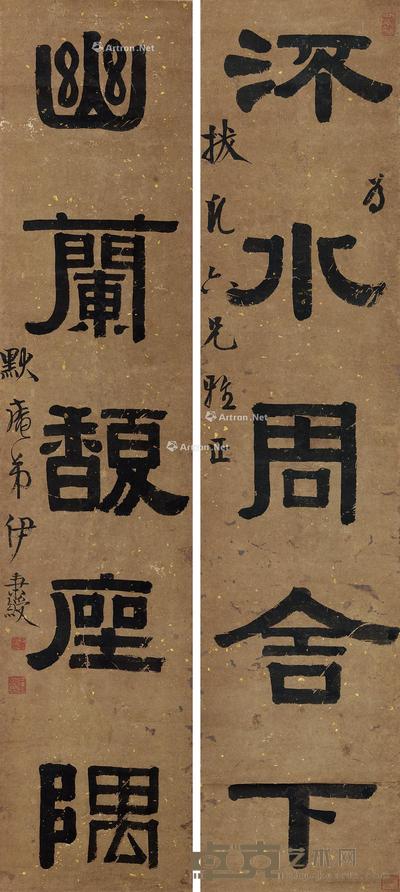 水周舍下
六兄雅正
幽蘭馥座隅
默庵弟伊秉綬
Artron.Net
Artron.Net
Artron.Net
Artron.Net
卓克艺术网